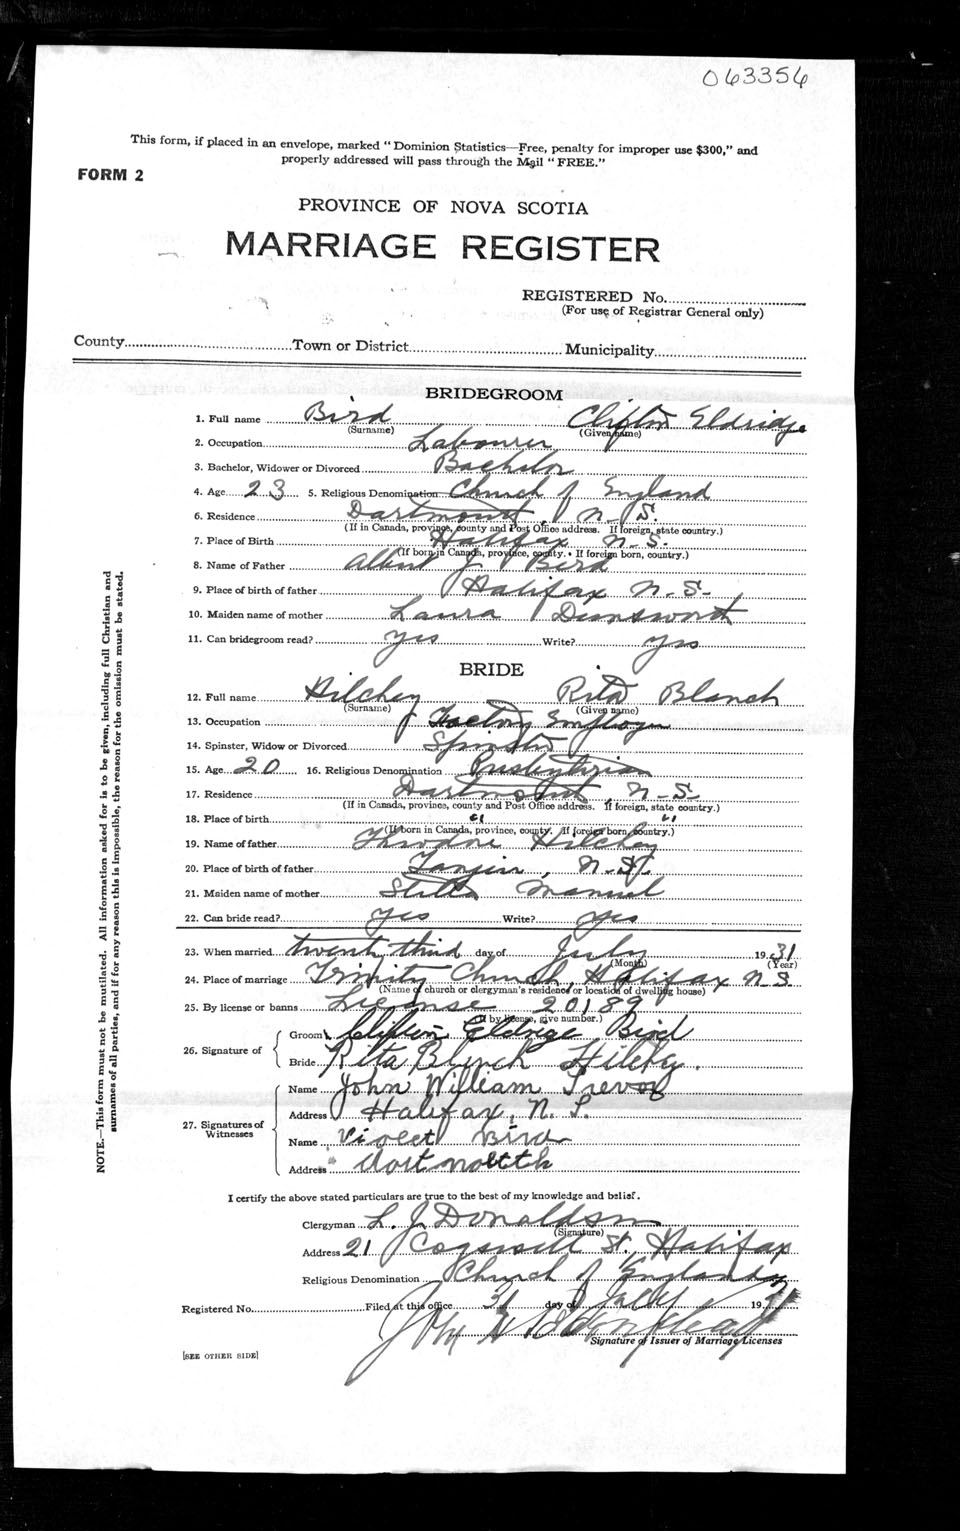 063354
This form, if placed in an envelope, marked "Dominion Statistics—Free, penalty for improper use $300," and
properly addressed will pass through the Mail "FREE."
FORM 2
PROVINCE OF NOVA SCOTIA
MARRIAGE REGISTER
REGISTERED No.
(For use of Registrar General only)
County Town or District Municipality
BRIDEGROOM
1. Full name Bird Clifton Eldridge
(Surname) (Given name)
2. Occupation Labourer
3. Bachelor, Widower or Divorced Bachelor
4. Age 23 5. Religious Denomination Church of England
6. Residence Dartmouth, N.S.
(If in Canada, province, county and Post Office address. If foreign, state country.)
7. Place of Birth Halifax N.S.
(If born in Canada, province, county. If foreign born, country.)
8. Name of Father Albert J. Bird
9. Place of birth of father Halifax N.S.
10. Maiden name of mother Laura Dunsworth
11. Can bridegroom read? yes Write? yes
BRIDE
12. Full name Hilchey Rita Blanch
(Surname) (Given name)
13. Occupation Factory Employee
14. Spinster, Widow or Divorced Spinster
15. Age 20 16. Religious Denomination Presbyterian
17. Residence Dartmouth, N.S.
(If in Canada, province, county and Post Office address. If foreign, state country.)
18. Place of birth " "
(If born in Canada, province, county. If foreign born, country.)
19. Name of father Hilchey
20. Place of birth of father Tangier, N.S.
21. Maiden name of mother Stella
22. Can bride read? yes Write? yes
23. When married twenty third day of July 1931
(Month) (Year)
24. Place of marriage Trinity Church, Halifax N.S.
(Name of church or clergyman's residence or location of dwelling house)
25. By license or banns License 20189
(If by license, give number.)
26. Signature of
Groom Clifton Eldrige Bird
Bride Rita Blanch Hilchey.
27. Signatures of
Witnesses
Name John William Trevor
Address Halifax, N.S.
Name Violet Bird
Address Dartmouth
I certify the above stated particulars are true to the best of my knowledge and belief.
Clergyman L. J. Donaldson
(Signature)
Address 21 Cogswell St., Halifax
Religious Denomination Church of England
Registered No. Filed at this office 31 day of July 1931
Signature of Issuer of Marriage Licenses
[SEE OTHER SIDE]
NOTE.—This form must not be mutilated. All information asked for is to be given, including full Christian and
surnames of all parties, and if for any reason this is impossible, the reason for the omission must be stated.